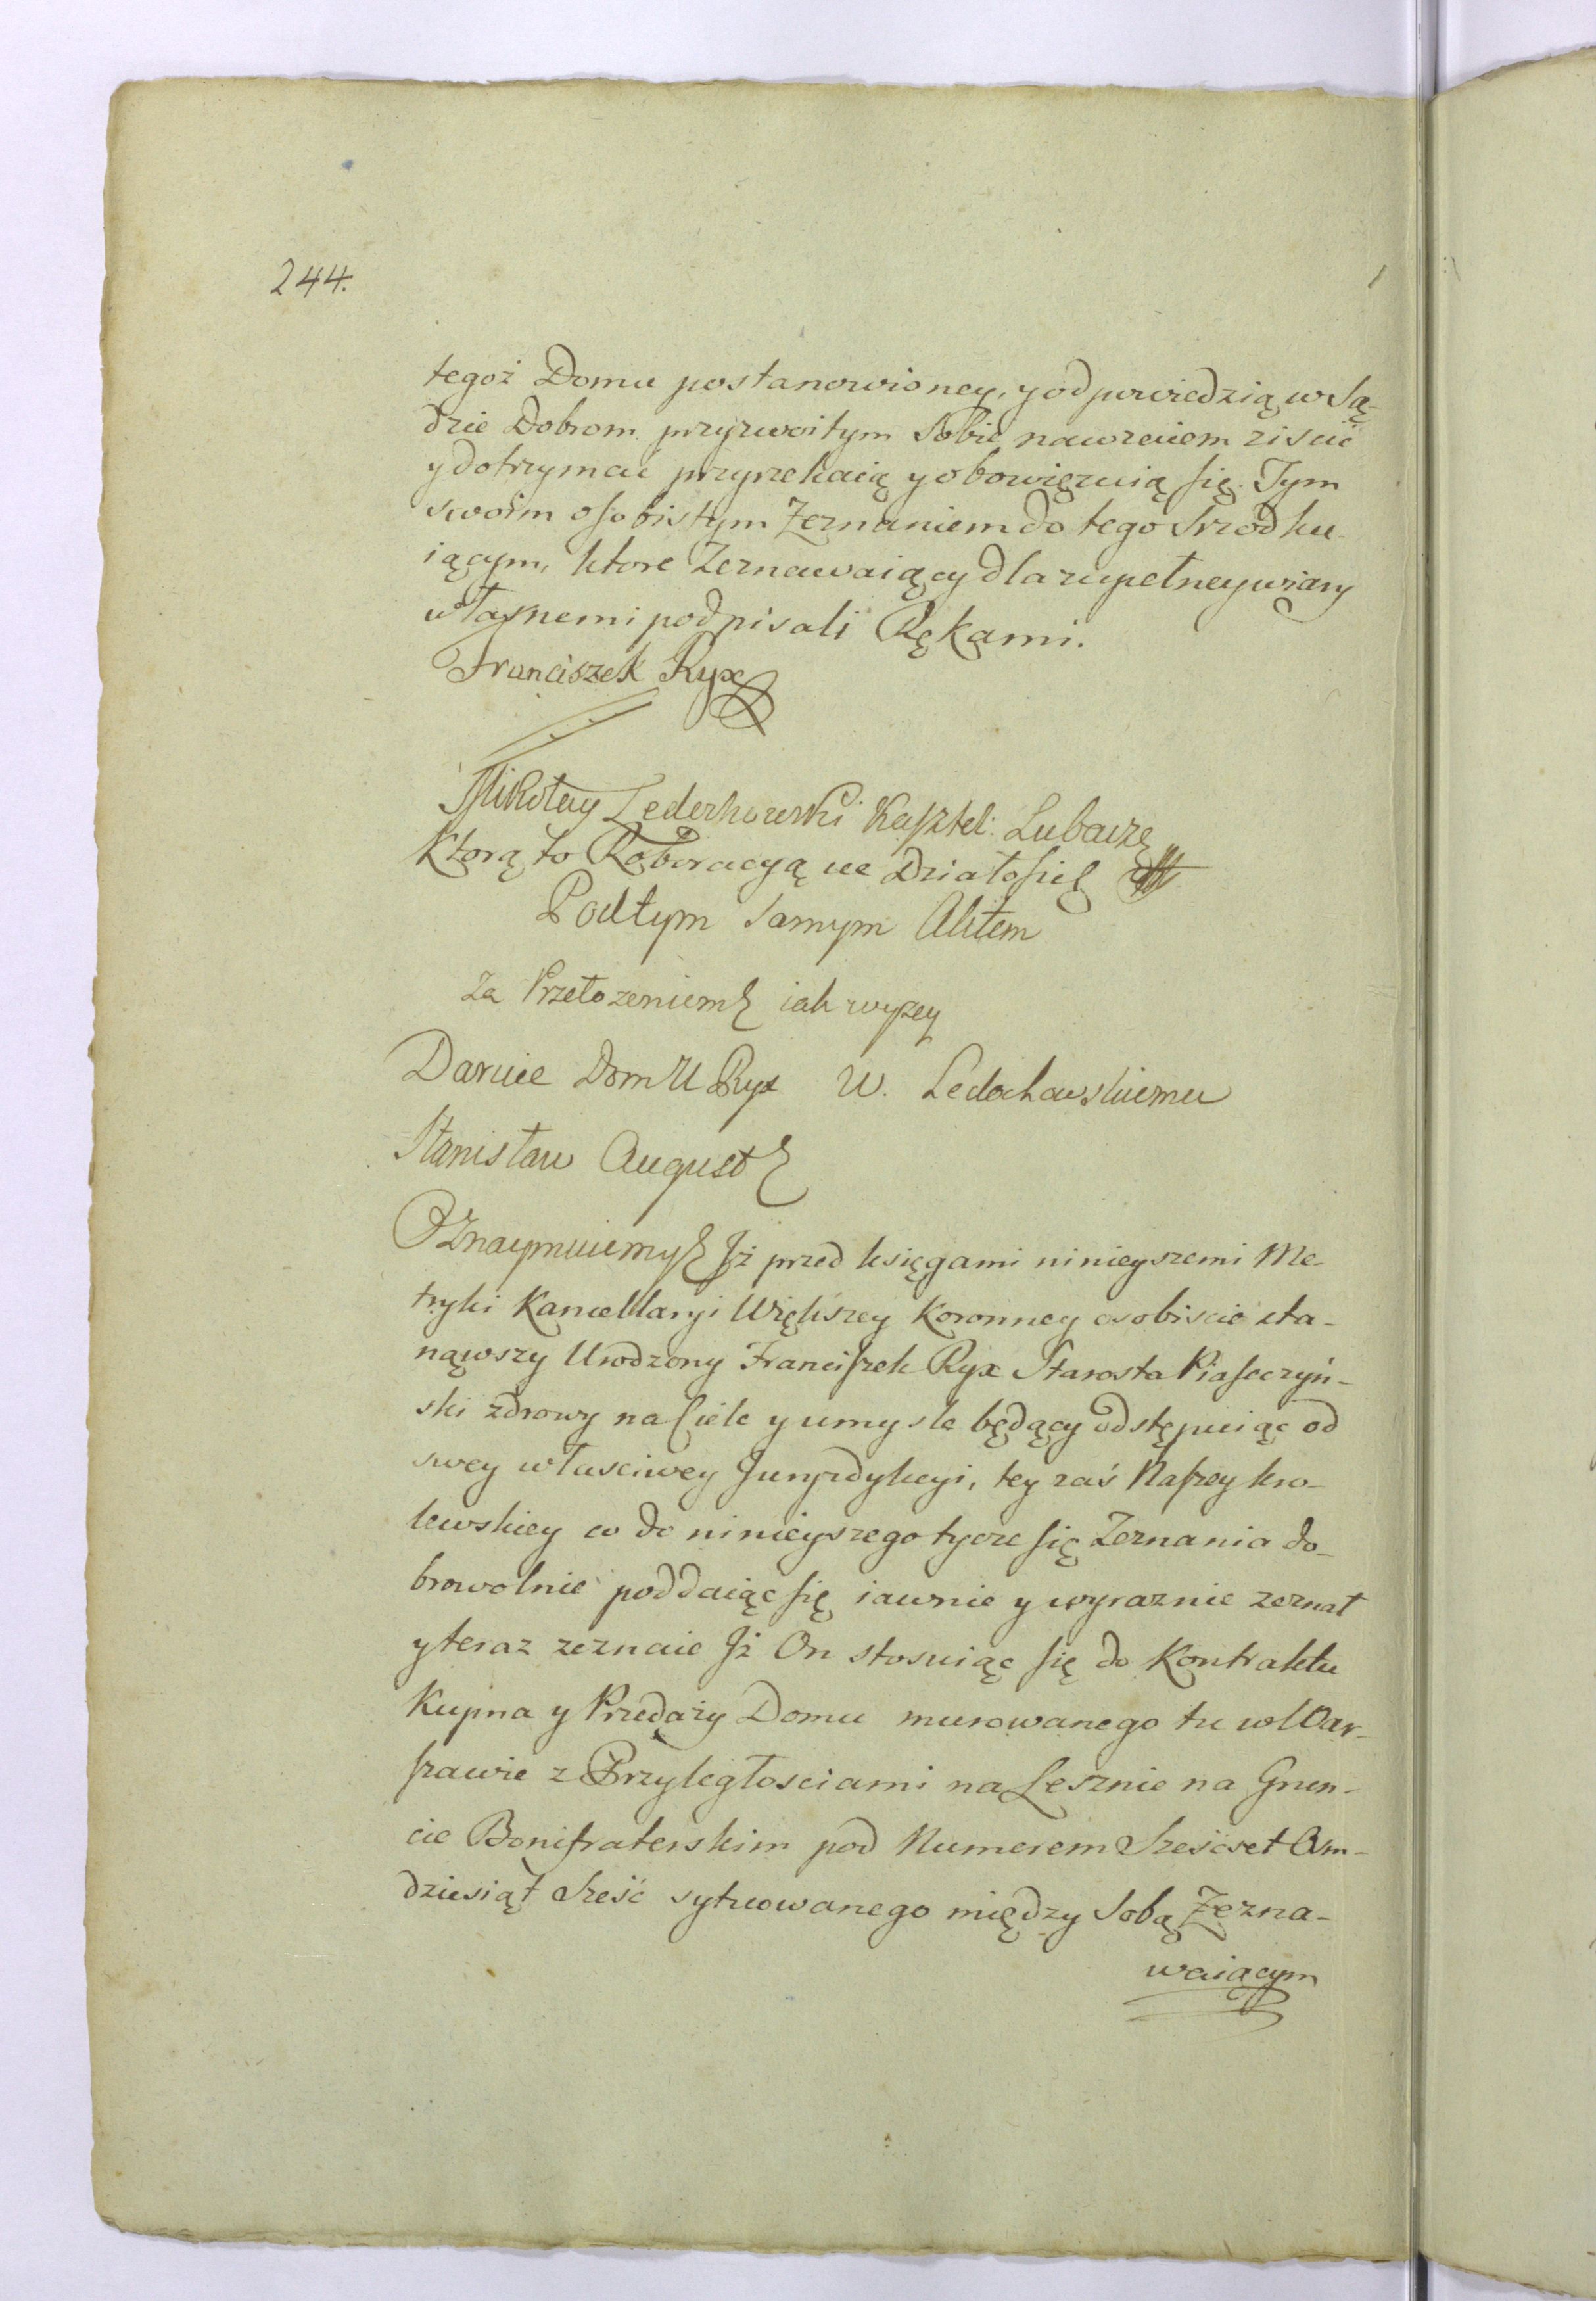 244.
tegoż Domu postanowioney, y odpowiedzią w Są-
dzie Dobrom przyzwoitym Sobie nawzaiem ziscić
y dotrzymać przyrzekaią y obowięzuią się. Tym
swoim osobistym Zeznaniem do tego Srzodku-
iącym, ktore Zeznawaiący dla zupełney wiary
własnemi podpisali Rękami.
Franciszek Ryx
Mikołay Ledochowski Kasztel: Lubacze
Ktorą to Roboracyą &c Działo się
Pod tym samym Aktem
Za Przełozeniem iak wyzey
Daruie Dom U Ryx W. Ledochowskiemu
Stanisław August
Oznaymuiemy Iż przed księgami ninieyszemi Me-
tryki Kancellaryi Większey Koronney osobiscie sta-
nąwszy Urodzony Franciszek Ryx Starosta Piaseczyń-
ski zdrowy na Ciele y umysle będący odstępuiąc od
swey własciwey Juryzdykcyi, tey zaś Naszey kro-
lewskiey co do ninieyszego tycze się Zeznania do-
browolnie poddaiąc się iawnie y wyraznie zeznał
y teraz zeznaie Iż On stosuiąc się do Kontraktu
Kupna y Przedaży Domu murowanego tu w War-
szawie z Przyległosciami na Lesznie na Grun-
cie Bonifraterskim pod Numerem Szescset Osm-
dziesiąt Sześć sytuowanego między Sobą Zezna-
waiącym